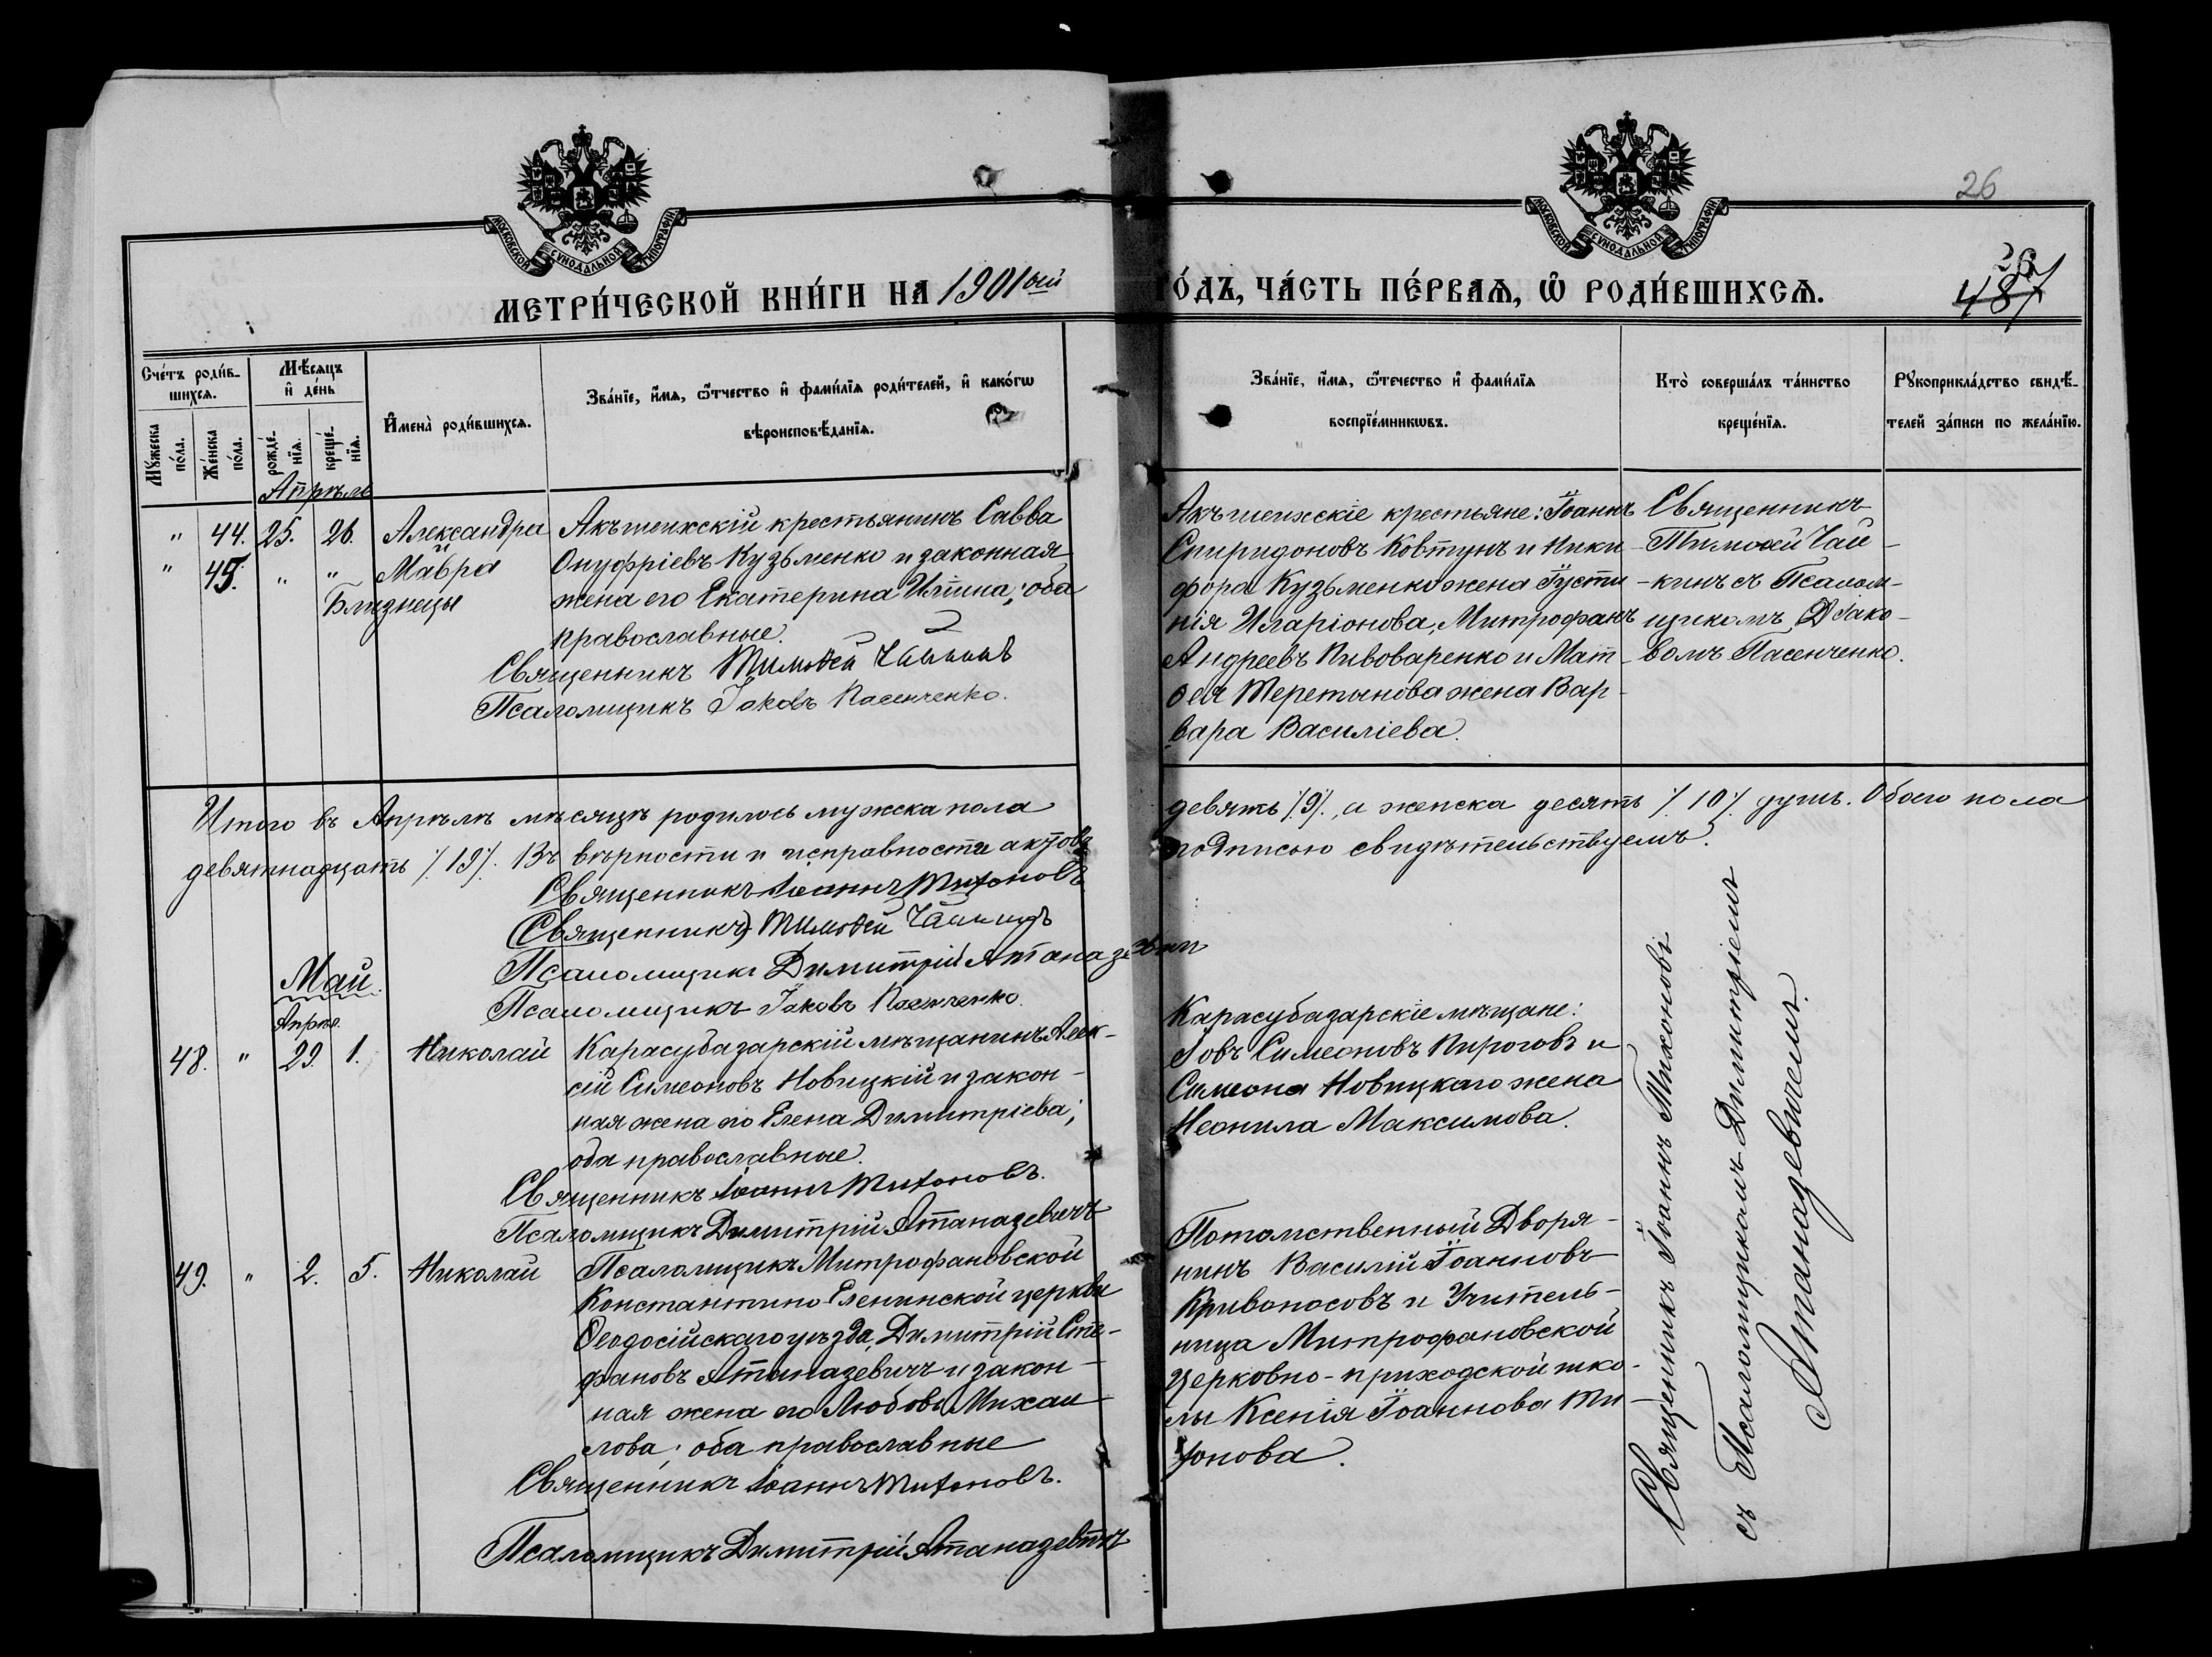 МОСКОВСКОЙ СѴНОДАЛЬНОЙ ТИПОГРАФІИ
МОСКОВСКОЙ СѴНОДАЛЬНОЙ ТИПОГРАФІИ
26
26
487
МЕТРИ́ЧЕСКОЙ КНИ́ГИ НА 1901ый ГО́ДЪ, ЧА́СТЬ ПЕ́РВАѦ, Ѡ҆ РОДИ́ВШИХСѦ.
Сче́тъ роди́в-
шихсѧ.
Мꙋ́жеска
по́ла.
Же́нска
по́ла.
Мѣ́сѧцъ
и҆ де́нь
рожде́-
нїѧ.
креще́-
нїѧ.
И҆мена̀ роди́вшихсѧ.
Зва́нїе, и҆́мѧ, ѻ҆́тчество и҆ фами́лїѧ роди́телей, и҆ како́гѡ
вѣроисповѣ́данїѧ.
Зва́нїе, и҆́мѧ, ѻ҆́течество и҆ фами́лїѧ
воспрїе́мникѡвъ.
Кто̀ соверша́лъ та́инство
креще́нїѧ.
Рꙋкоприкла́дство свидѣ́-
телей за́писи по жела́нїю.
Апрѣль
" 44. 25. 26. Александра
и
" 45. " " Мавра
Близнецы
Акъшеихскій крестьянинъ Савва
Онуфріевъ Кузьменко и законная
жена его Екатерина Ильина; оба
православные.
Священникъ Тимоѳей Чайкинъ
Псаломщикъ Іаковъ Пасенченко.
Акъшеихскіе крестьяне: Іоаннъ
Спиридоновъ Ковтунъ и Ники-
фора Кузьменко жена Іусти-
нія Иларіонова, Митрофанъ
Андреевъ Пивоваренко и Мат-
ѳея Теретьянова жена Вар-
вара Василіева.
Священникъ
Тимоѳей Чай-
кинъ съ Псалом-
щикомъ Іако-
вомъ Пасенченко.
Итого въ Апрѣлѣ мѣсяцѣ родилось мужска пола девять /9/, а женска десять /10/ душъ. Обоего пола
девятнадцать /19/. Въ вѣрности и исправности актовъ подписью свидѣтельствуемъ.
Священникъ Іоаннъ Тихоновъ
Священникъ Тимоѳей Чайкинъ
Псаломщикъ Димитрій Атаназевич
Псаломщикъ Іаковъ Пасенченко.
Май.
Апрѣл.
48. " 29. 1. Николай
Карасубазарскій мѣщанинъ Алек-
сій Симеоновъ Новицкій и закон-
ная жена его Елена Димитріева;
оба православные.
Священникъ Іоаннъ Тихоновъ.
Псаломщикъ Димитрій Атаназевичъ
Карасубазарскіе мѣщане:
Іовъ Симеоновъ Пироговъ и
Симеона Новицкаго жена
Неонила Максимова.
49. " 2. 5. Николай
Псаломщикъ Митрофановской
Константино-Еленинской церкви
Ѳеодосійскаго уѣзда, Димитрій Сте-
фановъ Атаназевичъ и закон-
ная жена его Любовь Михаи-
лова; оба православные
Священникъ Іоаннъ Тихоновъ.
Псаломщикъ Димитрій Атаназевичъ
Потомственный Дворя-
нинъ Василій Іоанновъ
Кривоносовъ и Учитель-
ница Митрофановской
Церковно-приходской шко-
лы Ксенія Іоаннова Ти-
хонова.
Священникъ Іоаннъ Тихоновъ
съ Псаломщикомъ Димитріемъ
Атаназевичемъ.